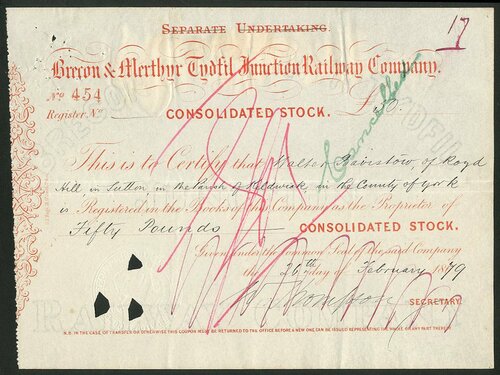 SEPARATE UNDERTAKING.
17
Brecon & Merthyr Tydfil Junction Railway Company.
No 454
£50.
Register No
Cancelled
CONSOLIDATED STOCK.
This is to Certify that Walter Bairstow, of Royd
Hill in Sutton in the Parish of Kildwick, in the County of York
is Registered in the Books of the Company as the Proprietor of
Fifty Pounds CONSOLIDATED STOCK.
Given under the Common Seal of the said Company
the 26th day of February 1879
SECRETARY.
N.B. IN THE CASE OF TRANSFER OR OTHERWISE THIS COUPON MUST BE RETURNED TO THE OFFICE BEFORE A NEW ONE CAN BE ISSUED REPRESENTING THE WHOLE OR ANY PART THEREOF.